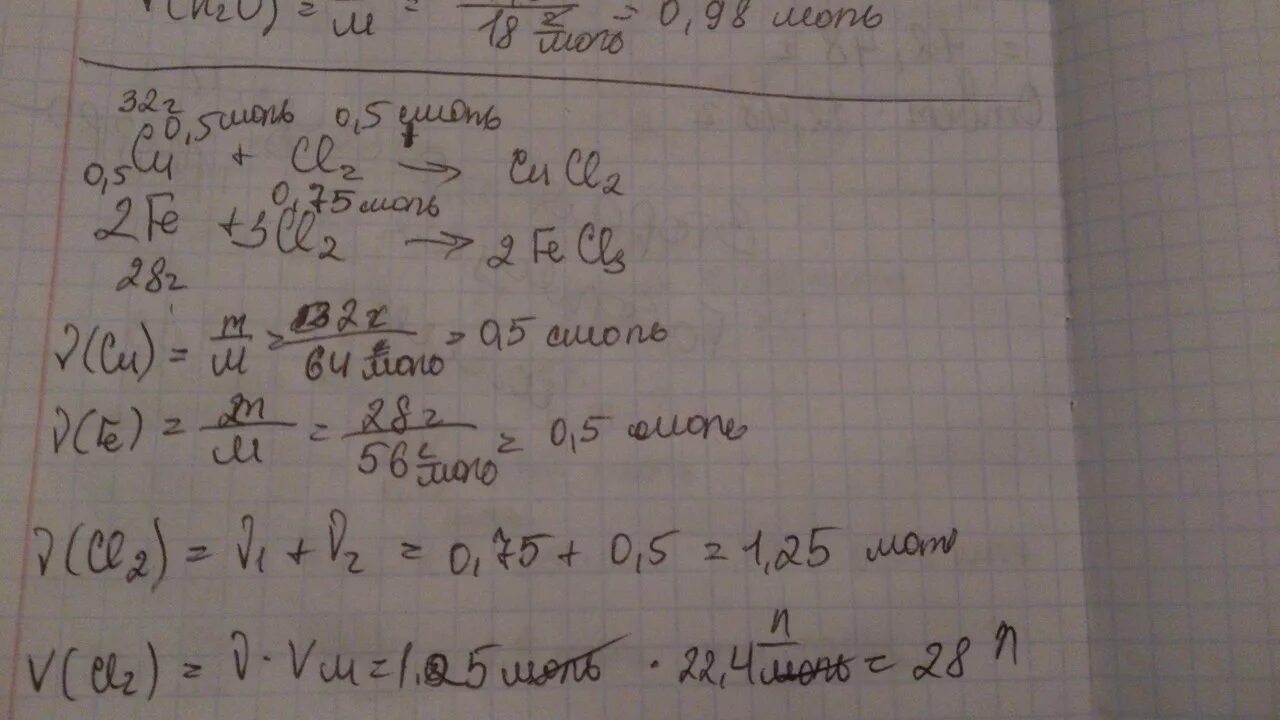 ν(H₂O) = — = — = 0,98 моль
M 18 г/моль
32г
0,5 моль 0,5 моль
0,5 Cu + Cl₂ → CuCl₂
0,75 моль
2Fe + 3Cl₂ → 2FeCl₃
28г
ν(Cu) = m/M = 32г / 64 г/моль = 0,5 моль
ν(Fe) = m/M = 28г / 56 г/моль = 0,5 моль
ν(Cl₂) = ν₁ + ν₂ = 0,75 + 0,5 = 1,25 мол
V(Cl₂) = ν · Vм = 1,25 моль · 22,4 л/моль = 28 л